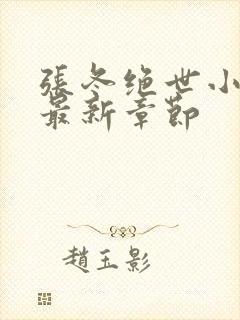 張冬绝世小
最新章節
趙玉影